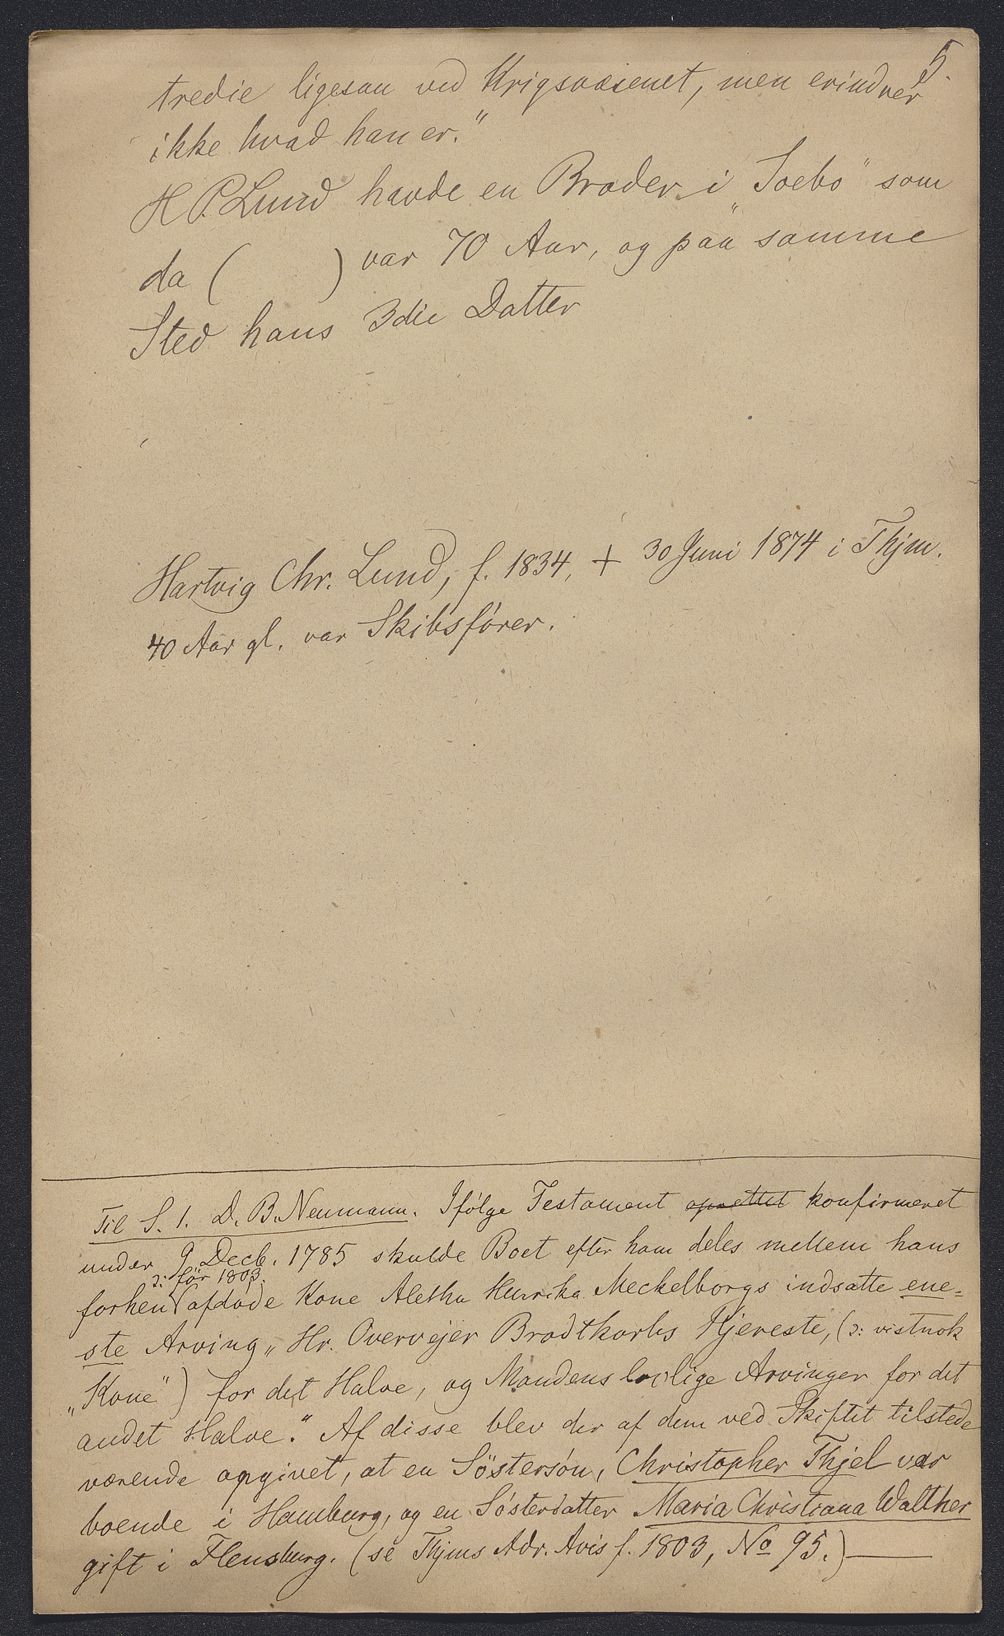 5.
tredie ligesaa ved Krigsvæsenet, men erindrer
ikke hvad han er."
H. P. Lund havde en Broder i "Soebo" som
da (       ) var 70 Aar, og paa samme
Sted hans 3die Datter
Hartvig Chr. Lund, f. 1834, + 30 Juni 1874 i Thjm.
40 Aar gl. var Skibsfører.
Til S. 1. D. B. Neumann. Ifølge Testament oprettet konfirmeret
under 9 Decb. 1785 skulde Boet efter ham deles mellem hans
ɔ: før 1803.
forhen afdøde Kone Aletha Henrika Meckelborgs indsatte ene-
ste Arving "Hr. Overvejer Brodtkorbs Kjereste, (ɔ: vistnok
"Kone") for det Halve, og Mandens lovlige Arvinger for det
andet Halve." Af disse blev der af dem ved Skiftet tilstede
værende opgivet, at en Søstersøn, Christopher Thjel var
boende i Hamburg, og en Søsterdatter Maria Christiana Walther
gift i Flensburg. (se Thjms Adr. Avis f. 1803, No 95.)